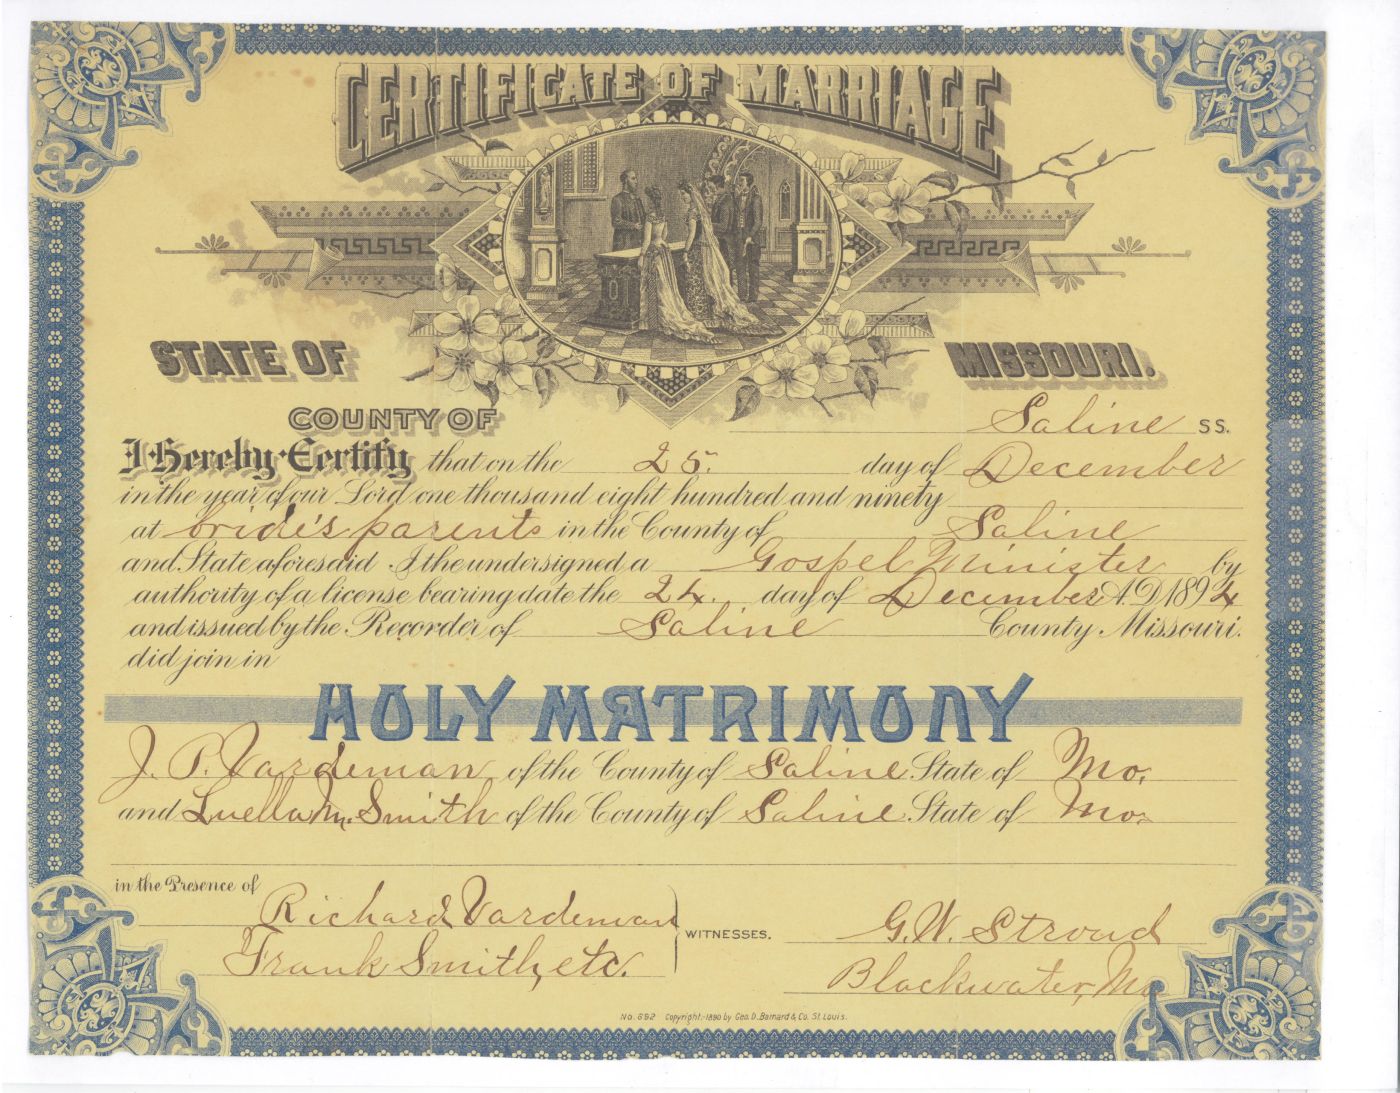 CERTIFICATE OF MARRIAGE
STATE OF MISSOURI.
COUNTY OF Saline SS.
I Hereby Certify that on the 25. day of December
in the year of our Lord one thousand eight hundred and ninety
at bride's parents in the County of Saline
and State aforesaid I the undersigned a Gospel Minister by
authority of a license bearing date the 24. day of December A.D. 1894
and issued by the Recorder of Saline County Missouri.
did join in
HOLY MATRIMONY
J. P. Vardeman of the County of Saline State of Mo.
and Luella M. Smith of the County of Saline State of Mo.
in the Presence of
Richard Vardeman
Frank Smith, etc.
WITNESSES.
G. W. Stroud
Blackwater, Mo
No. 692 Copyright-1890 by Geo. D. Barnard & Co. St. Louis.